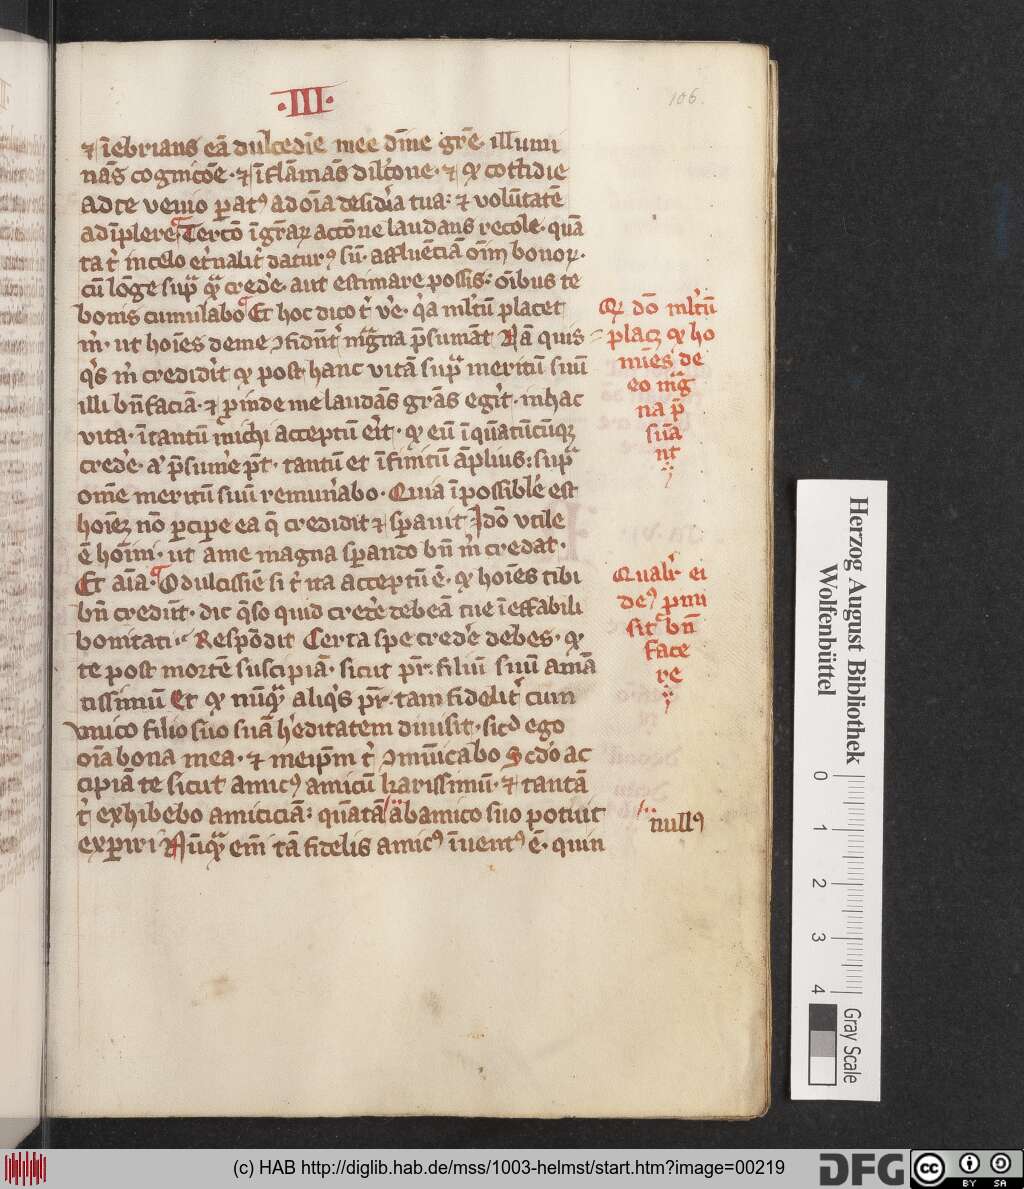 ·III·
106.
⁊ īebrians eā dulcedīe mee dīne gr̄e· illumi
nās cognicōe·⁊ īflāmās dilcōne·⁊ qͥ cottidie
ad te venio ꝑatꝰ ad oīa desid̓ia tua: ⁊ volūtatē
adīplere Tercō ī gr̄aꝝ actōne laudans recole· quā
ta t̄ in celo et̓nalit̓ daturꝰ sū· affluēciā oīm bonoꝝ·
cū lōge supᷓ qᷓ cred̓e· aut estimare possis: oībus te
bonis cumulabo Et hoc dico t̄ v̓e· qͥa ml̓tū placet
m̄· ut hoīes de me ꝯfidūt̓ mᷓgna p̄sumāt Nā quis
qͥs m̄ credid̓it qͥ post hanc vitā supᷓ meritū suū
illi bn̄ faciā·⁊ ꝓinde me laudās gr̄as eg̓it· in hac
vita· ītantū michi acceptū er̓it· qͥ eū īquātūcūqꝫ
cred̓e· aͭ p̄sum̓e p̄t· tantū et īfinitū āplius: supᷓ
om̄e meritū suū remun̓abo· Quia īpossibile est
hoīeꝫ nō ꝑcipe ea q̄ credidit ⁊ sꝑauit Idō vtile
ē hoīni· ut a me magna sꝑando bn̄ m̄ credat·
Et aīa· O dulcissīe si t̄ ita acceptū ē· qͥ hoīes tibi
bn̄ credūt· dic q̄so quid cred̓e debeā tue īeffabili
bonitati·· Respōdit Certa spe cred̓e debes· qͥ
te post mortē suscipiā· sicut pr̄· filiū suū amā
tissimū Et qͥ nūqᷓ aliqͥs pr̄· tam fidelit̓ cum
vnico filio suo suā h̓editatem diuisit· sic̓ ego
oīa bona mea·⁊ meip̄m t̄ ꝯmūicabo Scd̓o ac
cipiā te sicut amicꝰ amicū karissimū·⁊ tantā
t̄ exhibebo amiciciā: quātā ab amico suo potuit
exꝑiri Nūqᷓ eīn tā fidelis amicꝰ īuentꝰ ē· quin
Qͥ dō ml̓tū
placꝫ qͥ ho
mīes de
eo mᷓg
na p̄
sūa
nt
Qualit̓ ei
deꝰ ꝓmi
sit bn̄
face
re
nullꝰ
Herzog August Bibliothek
Wolfenbüttel
0 1 2 3 4
Gray Scale
(c) HAB http://diglib.hab.de/mss/1003-helmst/start.htm?image=00219
DFG
cc BY SA